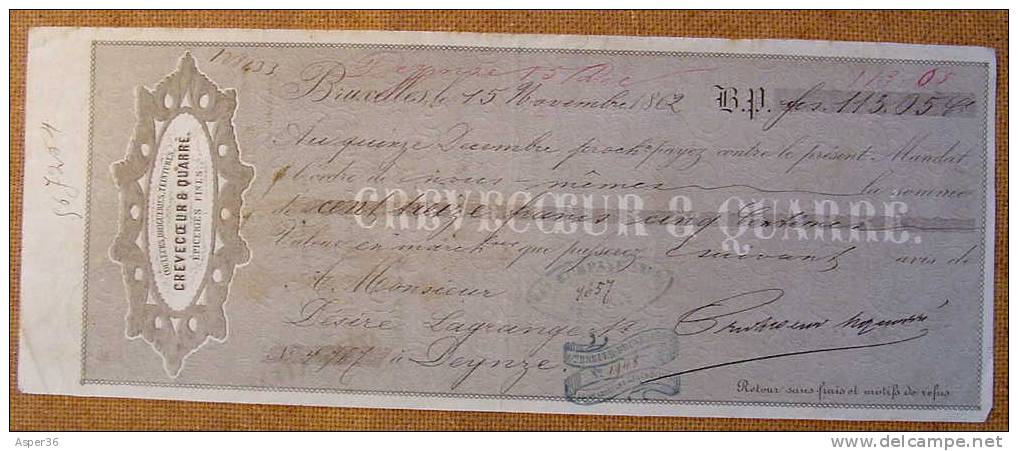 COULEURS, DROGUERIES, TEINTURES,
CREVECŒUR & QUARRÉ.
ÉPICERIES FINES
Deynze 15 Dbre 113 05
Bruxelles, le 15 Novembre 1862 B.P. frs. 113.05 cs
Au quinze Decembre proch. payez contre le présent Mandat
à l'ordre de nous-mêmes la somme
CREVECŒUR & QUARRÉ.
de cent treize francs cinq centimes
Valeur en march. que passerez suivant avis de
A Monsieur
9657
Désiré Lagrange
à Deynze.
Crevecœur & Quarré
Retour sans frais et motifs de refus
96 7254
Asper36
www.delcampe.net